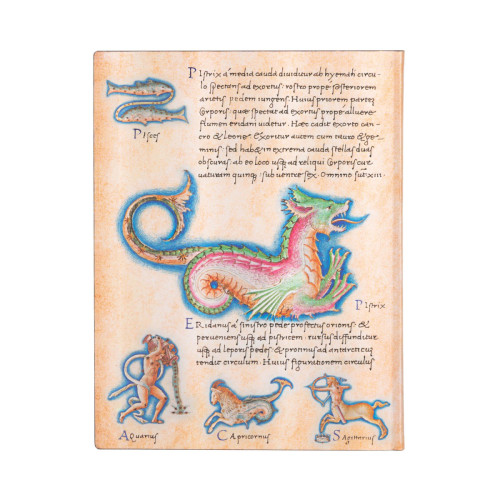 PIstrix á media cauda diuiditur ab hyemali circu-
lo spectans ad exortus: rostro prope posteriorem
arietis pedem iungens. Huius priorem partem
Corporis: quae spectat ad exortus prope alluere
flumen eridani uidetur. Haec cadit exorto can-
cro & leone. Exoritur autem cum tauro & ge-
minis: sed habet in extrema cauda stellas duas
obscuras: ab eo loco usq ad reliqui Corporis cur-
uaturam quinq: sub uentre sex. Omnino sut xiii.
PIsces
PIstrix
ERidanus á sinistro pede profectus orionis: &
perueniens usq ad pistricem: rursus diffunditur
usq ad leporis pedes: & protinus ad antarcticum
tendit circulum. Huius figurationem circulus
AQuarius
CApricornus
SAgittarius